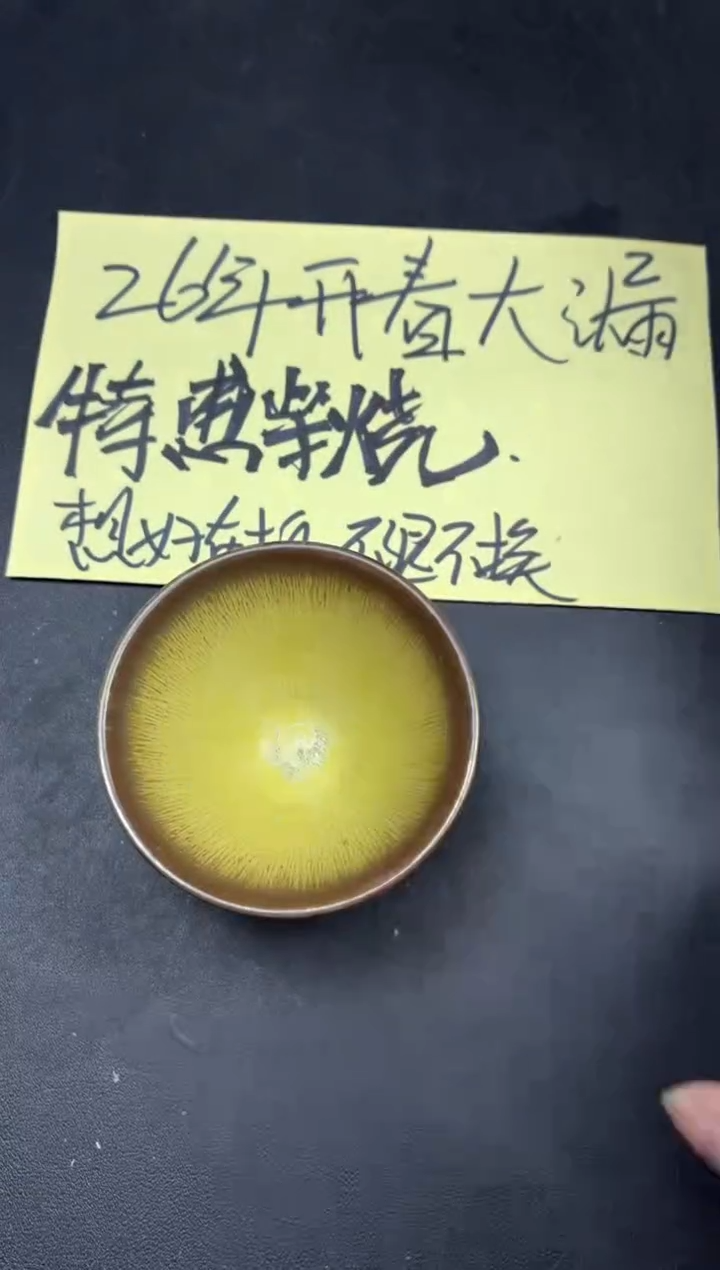 26年开春大漏
特惠柴烧.
想好在拍 不退不换